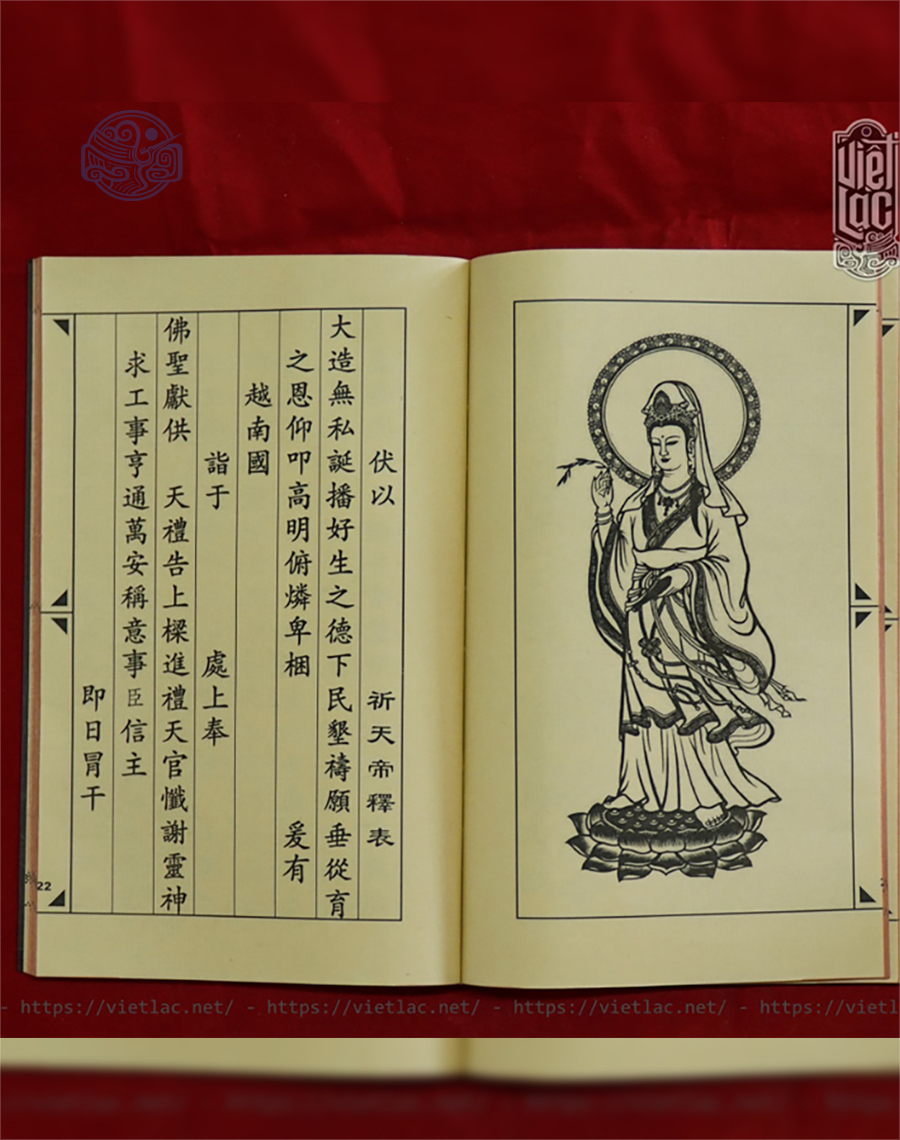 Việt
Lạc
伏以 祈天帝釋表
大造無私誕播好生之德下民墾禱願垂從育
之恩仰叩高明俯燐卑梱 爰有
越南國
詣于 處上奉
佛聖獻供 天禮告上樑進禮天官懺謝靈神
求工事亨通萬安稱意事臣信主
即日冐干
22
- https://vietlac.net/ - https://vietlac.net/ - https://vietlac.net/ - https://vietla